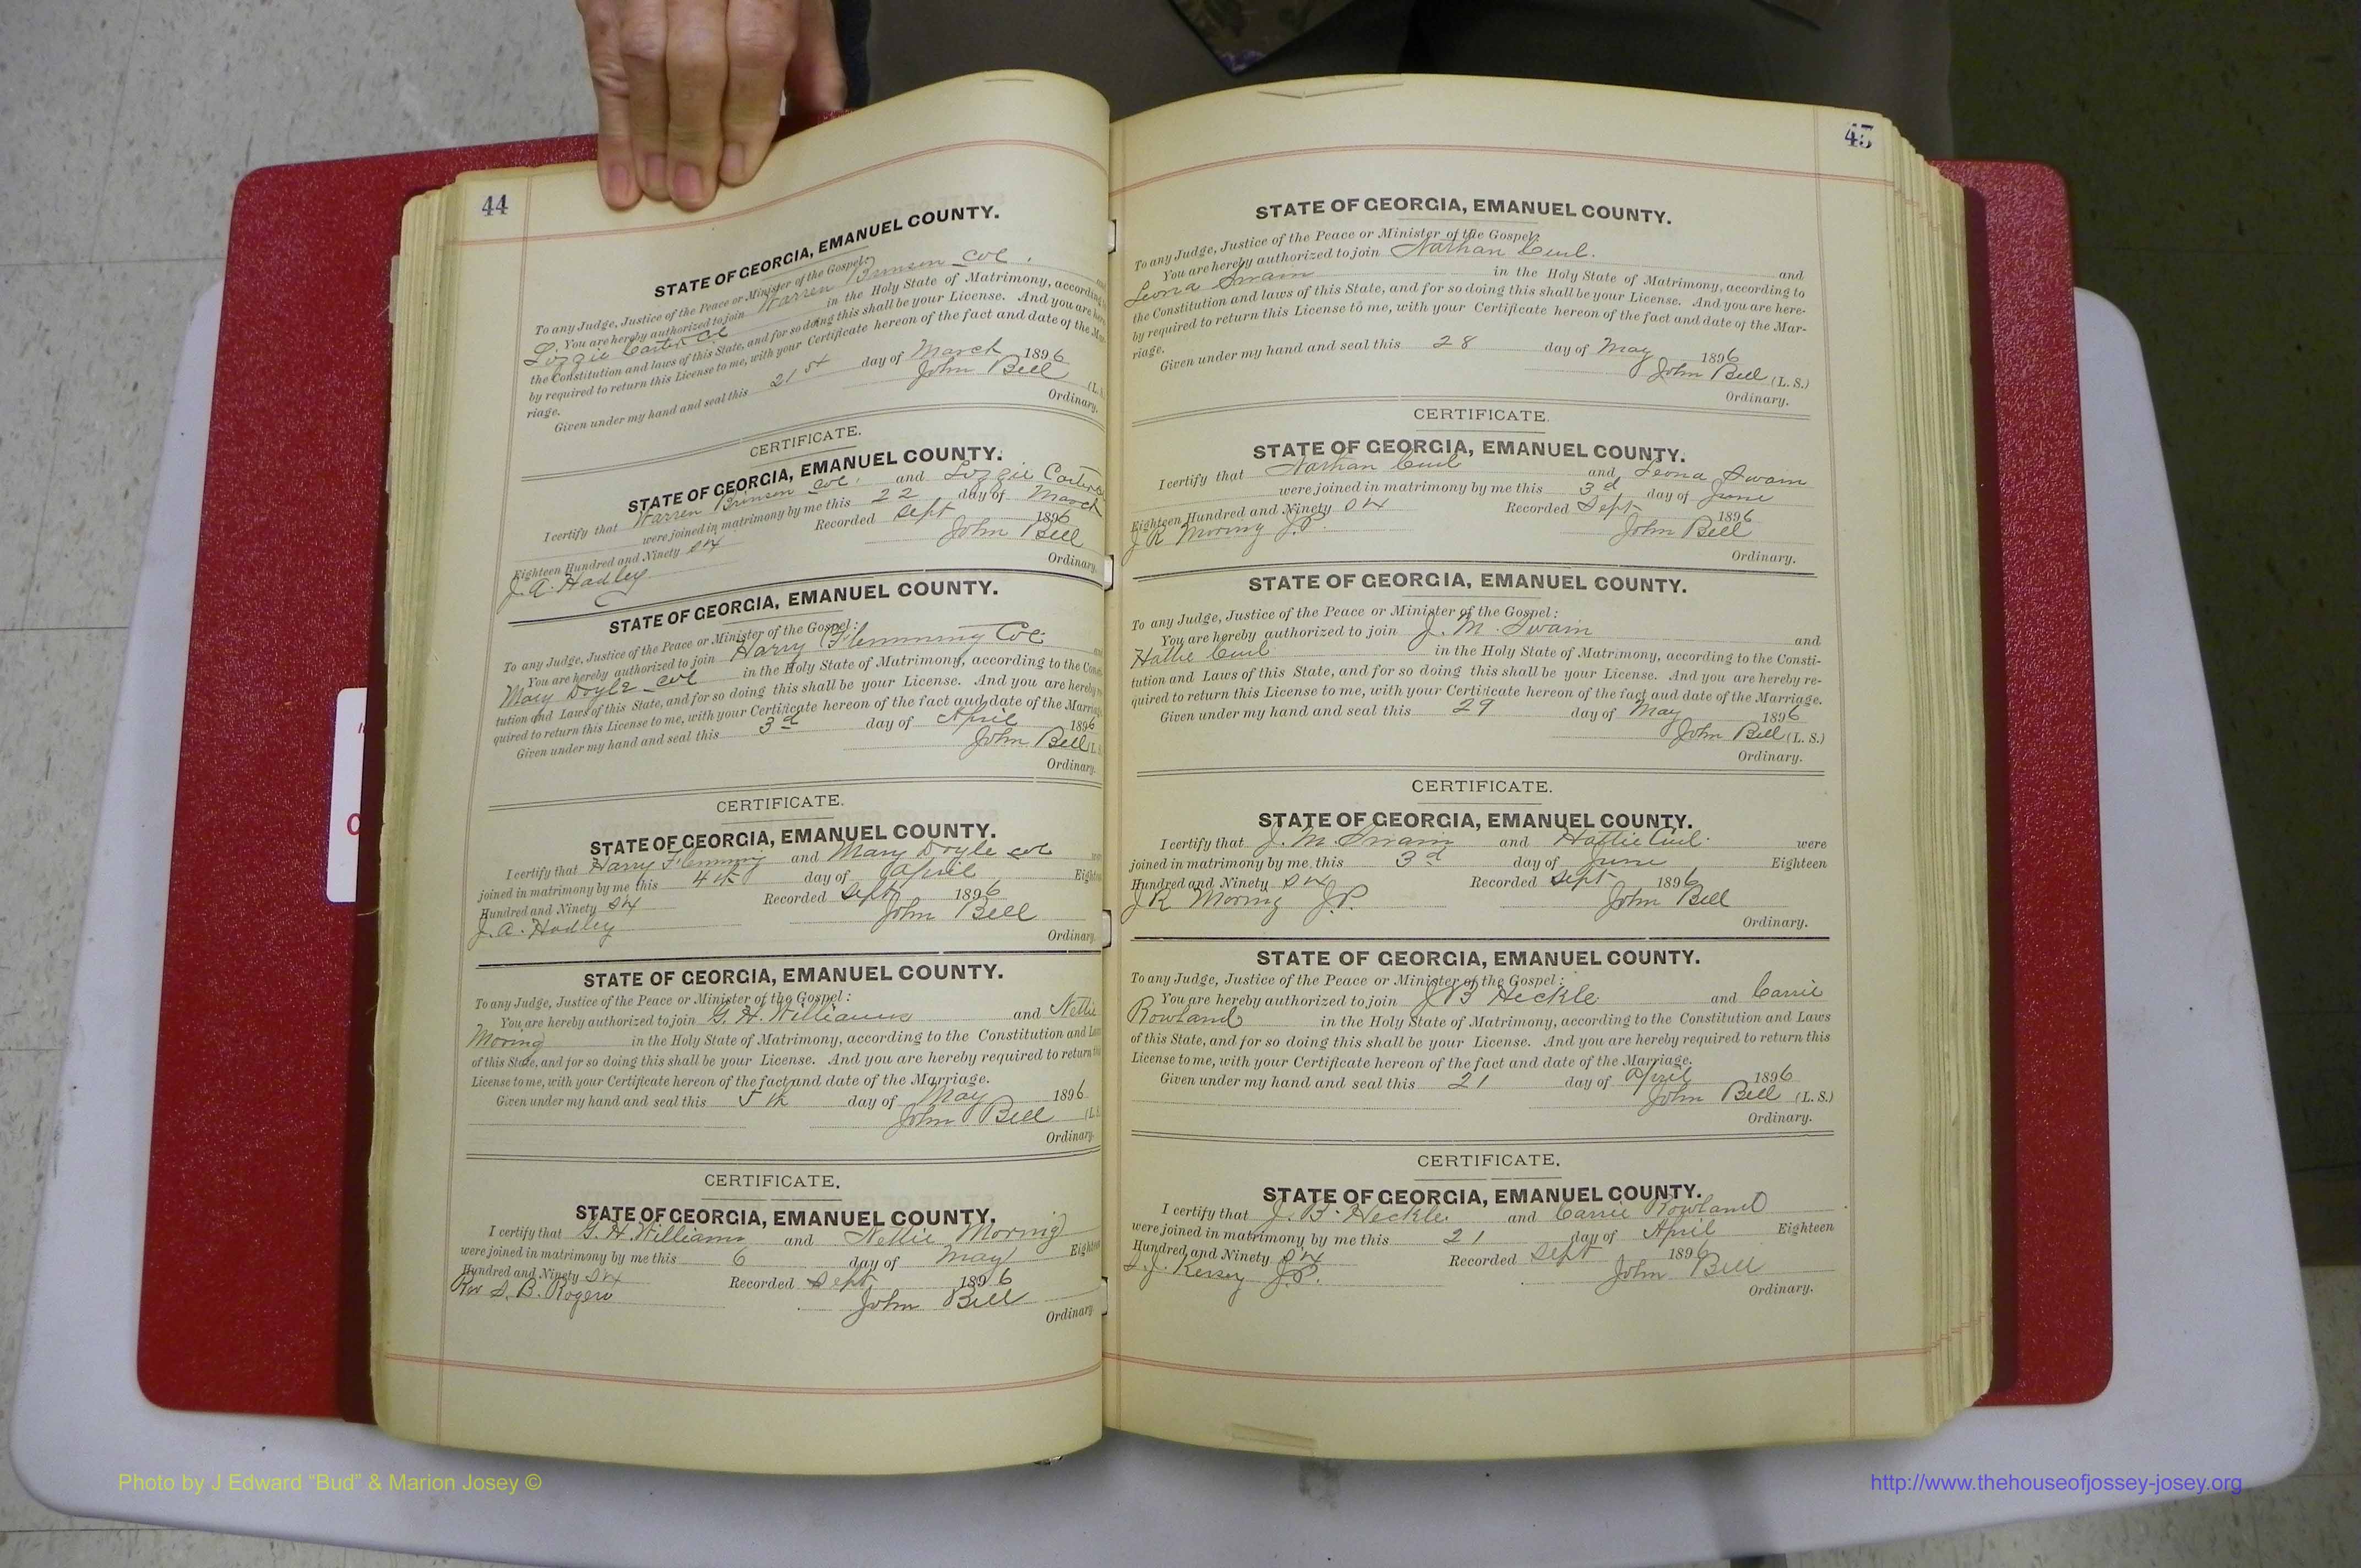 44
STATE OF GEORGIA, EMANUEL COUNTY.
To any Judge, Justice of the Peace or Minister of the Gospel:
You are hereby authorized to join Warren Brinson col.
Lizzie Carter Col in the Holy State of Matrimony, according
the Constitution and laws of this State, and for so doing this shall be your License. And you are here
by required to return this License to me, with your Certificate hereon of the fact and date of the Mar
riage.
Given under my hand and seal this 21st day of March 1896
John Bell (L.
Ordinary.
CERTIFICATE.
STATE OF GEORGIA, EMANUEL COUNTY.
I certify that Warren Brinson col. and Lizzie Carter
were joined in matrimony by me this 22 day of March
Eighteen Hundred and Ninety six Recorded Sept 1896
J. A. Hadley John Bell
Ordinary.
STATE OF GEORGIA, EMANUEL COUNTY.
To any Judge, Justice of the Peace or Minister of the Gospel:
You are hereby authorized to join Harry Flemming Col.
Mary Doyle col in the Holy State of Matrimony, according to the Consti
tution and Laws of this State, and for so doing this shall be your License. And you are hereby re
quired to return this License to me, with your Certificate hereon of the fact and date of the Marriage
Given under my hand and seal this 3d day of April 1896
John Bell (L. S.
Ordinary.
CERTIFICATE.
STATE OF GEORGIA, EMANUEL COUNTY.
I certify that Harry Flemming and Mary Doyle col
joined in matrimony by me this 4th day of April Eighteen
Hundred and Ninety six Recorded Sept 1896
J. A. Hadley John Bell
Ordinary.
STATE OF GEORGIA, EMANUEL COUNTY.
To any Judge, Justice of the Peace or Minister of the Gospel:
You are hereby authorized to join G. H. Williams and Nellie
Moring in the Holy State of Matrimony, according to the Constitution and Laws
of this State, and for so doing this shall be your License. And you are hereby required to return this
License to me, with your Certificate hereon of the fact and date of the Marriage.
Given under my hand and seal this 5th day of May 1896
John Bell (L.
Ordinary.
CERTIFICATE.
STATE OF GEORGIA, EMANUEL COUNTY.
I certify that G. H. Williams and Nellie Moring
were joined in matrimony by me this 6 day of May Eighteen
Hundred and Ninety six Recorded Sept, 1896
Rev S. B. Rogers John Bell
Ordinary
45
STATE OF GEORGIA, EMANUEL COUNTY.
To any Judge, Justice of the Peace or Minister of the Gospel:
You are hereby authorized to join Nathan Curl. and
Leona Swain in the Holy State of Matrimony, according to
the Constitution and laws of this State, and for so doing this shall be your License. And you are here-
by required to return this License to me, with your Certificate hereon of the fact and date of the Mar-
riage.
Given under my hand and seal this 28 day of May 1896
John Bell (L. S.)
Ordinary.
CERTIFICATE.
STATE OF GEORGIA, EMANUEL COUNTY.
I certify that Nathan Curl and Leona Swain
were joined in matrimony by me this 3d day of June
Eighteen Hundred and Ninety six Recorded Sept 1896
J R Moring J.P. John Bell
Ordinary.
STATE OF GEORGIA, EMANUEL COUNTY.
To any Judge, Justice of the Peace or Minister of the Gospel:
You are hereby authorized to join J. M. Swain and
Hattie Curl in the Holy State of Matrimony, according to the Consti-
tution and Laws of this State, and for so doing this shall be your License. And you are hereby re-
quired to return this License to me, with your Certificate hereon of the fact and date of the Marriage.
Given under my hand and seal this 29 day of May 1896
John Bell (L. S.)
Ordinary.
CERTIFICATE.
STATE OF GEORGIA, EMANUEL COUNTY.
I certify that J. M. Swain and Hattie Curl. were
joined in matrimony by me this 3d day of June Eighteen
Hundred and Ninety six Recorded Sept 1896
J R Moring J.P. John Bell
Ordinary.
STATE OF GEORGIA, EMANUEL COUNTY.
To any Judge, Justice of the Peace or Minister of the Gospel:
You are hereby authorized to join J B Heckle and Carrie
Rowland in the Holy State of Matrimony, according to the Constitution and Laws
of this State, and for so doing this shall be your License. And you are hereby required to return this
License to me, with your Certificate hereon of the fact and date of the Marriage.
Given under my hand and seal this 21 day of April 1896
John Bell (L. S.)
Ordinary.
CERTIFICATE.
STATE OF GEORGIA, EMANUEL COUNTY.
I certify that J. B. Heckle. and Carrie Rowland
were joined in matrimony by me this 21 day of April Eighteen
Hundred and Ninety six Recorded Sept 1896
S. J. Kersey J.P. John Bell
Ordinary.
Photo by J Edward "Bud" & Marion Josey ©
http://www.thehouseofjossey-josey.org